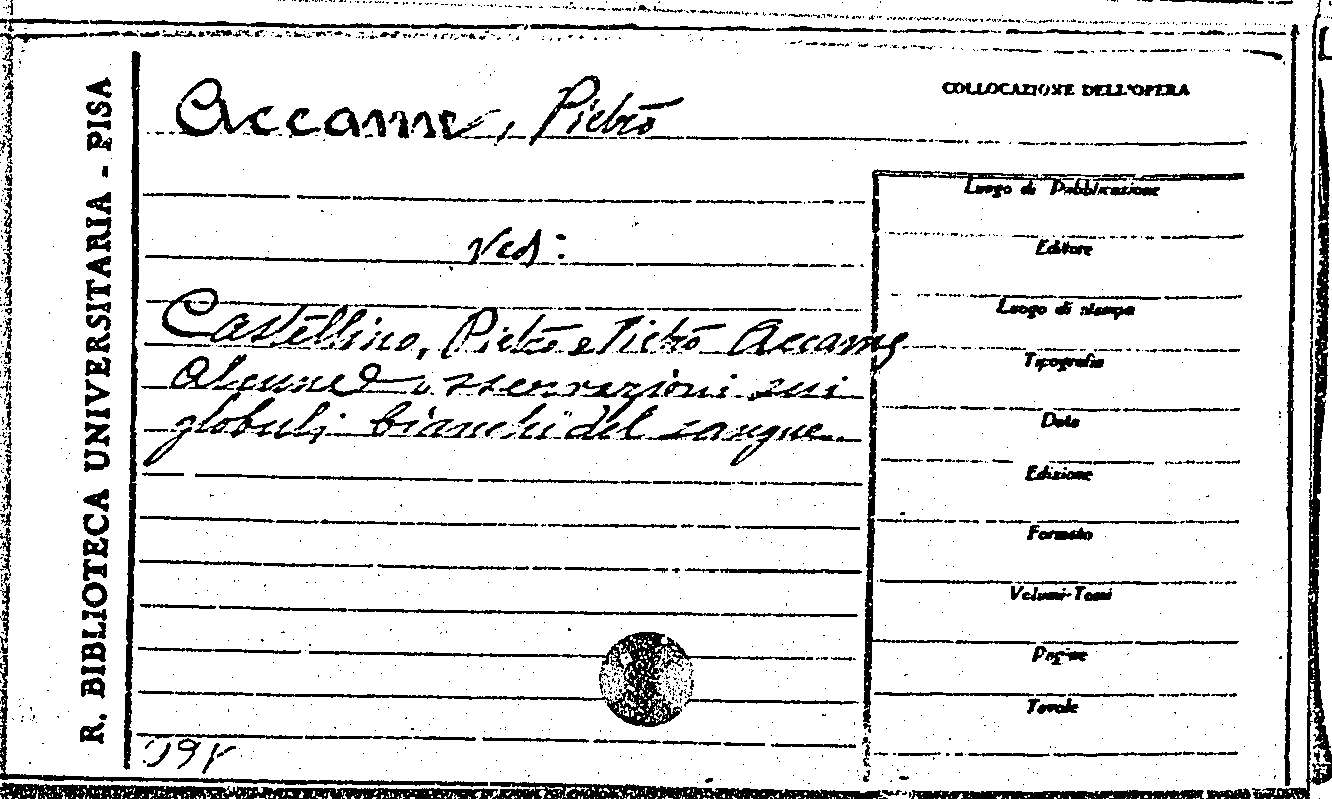 R. BIBLIOTECA UNIVERSITARIA - PISA
Accame, Pietro
COLLOCAZIONE DELL'OPERA
Ved:
Castellino, Pietro e Pietro Accame
Alcune osservazioni sui
globuli bianchi del sangue.
Luogo di Pubblicazione
Editore
Luogo di stampa
Tipografia
Data
Edizione
Formato
Volumi-Tomi
Pagine
Tavole